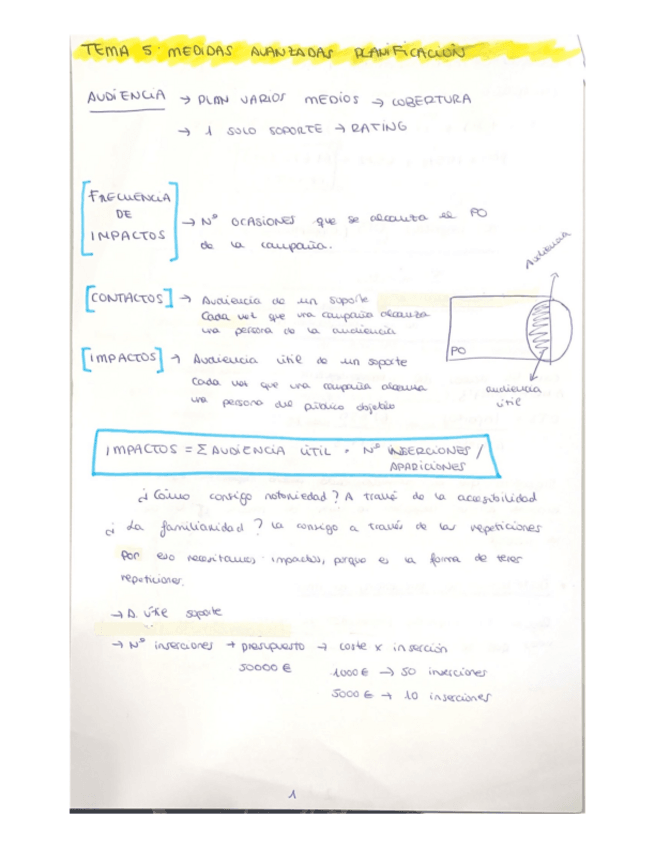 TEMA 5: MEDIDAS AVANZADAS PLANIFICACIÓN
AUDIENCIA → PLAN VARIOS MEDIOS → COBERTURA
→ 1 SOLO SOPORTE → RATING
[FRECUENCIA
DE
IMPACTOS]
→ Nº OCASIONES que se alcanza el PO
de la campaña.
[CONTACTOS] → Audiencia de un soporte
Cada vez que una campaña alcanza
una persona de la audiencia
Audiencia
PO
audiencia
útil
[IMPACTOS] → Audiencia útil de un soporte
Cada vez que una campaña alcanza
una persona del público objetivo
IMPACTOS = Σ AUDIENCIA ÚTIL · Nº INSERCIONES /
APARICIONES
¿Cómo consigo notoriedad? A través de la accesibilidad
¿La familiaridad? La consigo a través de las repeticiones
Por eso necesitamos impactos, porque es la forma de tener
repeticiones.
→ A. útil soporte
→ Nº inserciones → presupuesto → coste x inserción
50000 € 1000 € → 50 inserciones
5000 € → 10 inserciones
1